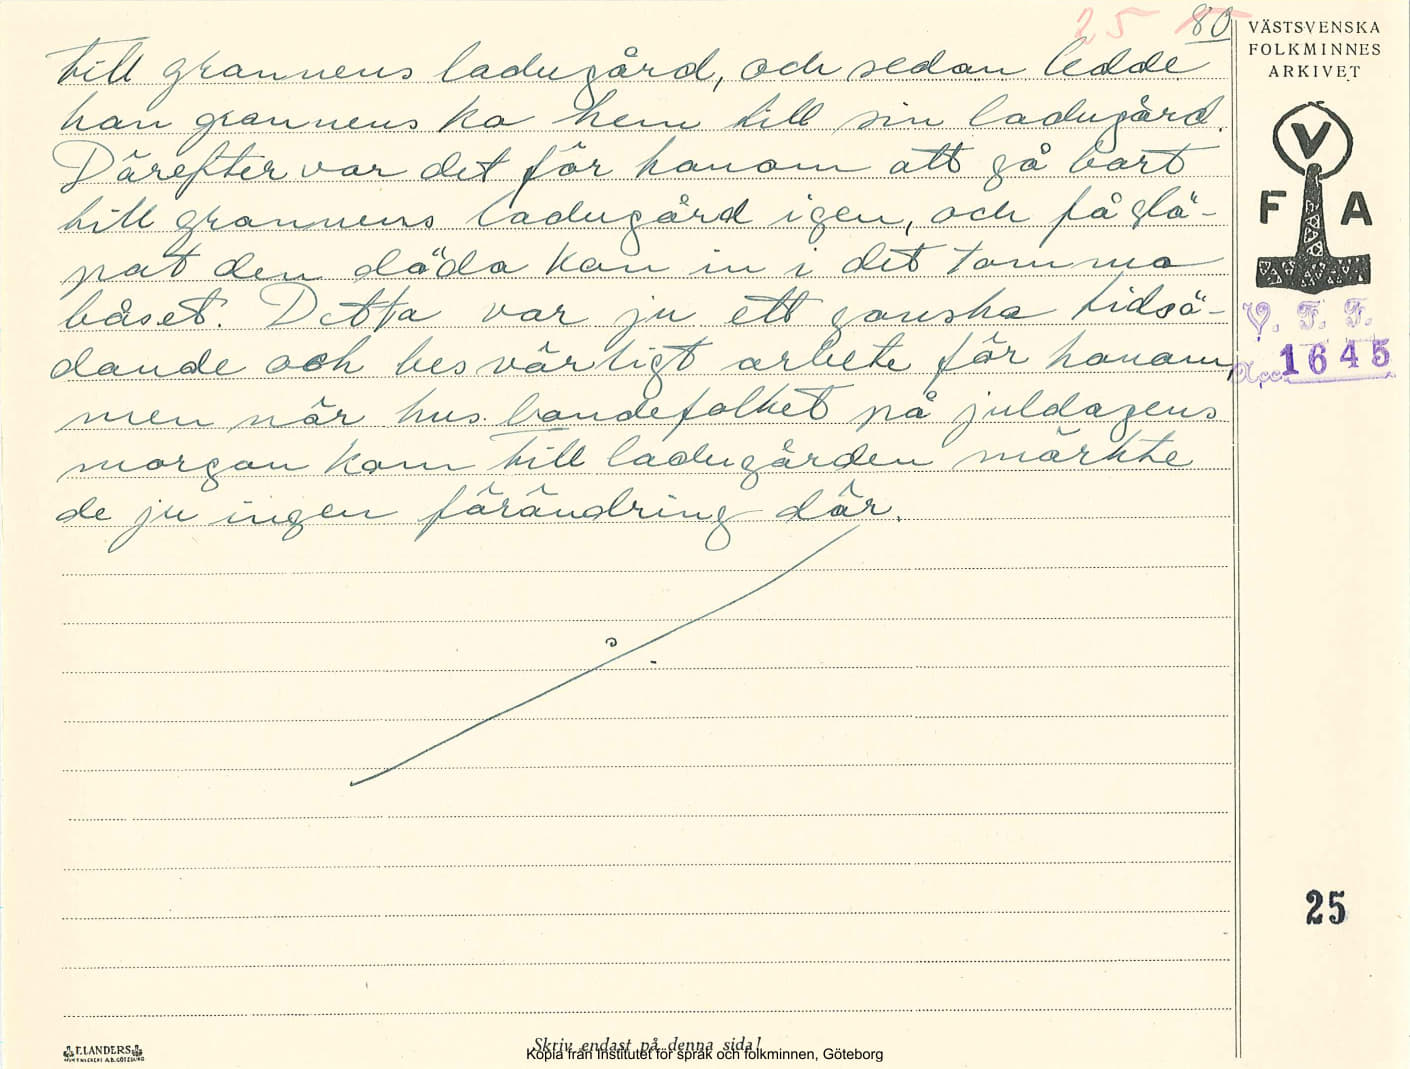 25 80
till grannens ladugård, och sedan ledde
han grannens ko hem till sin ladugård.
Därefter var det för honom att gå bort
till grannens ladugård igen, och få slä-
pat den döda kon in i det tomma
båset. Detta var ju ett ganska tidsö-
dande och besvärligt arbete för honom,
men när husbondefolket på juldagens
morgon kom till ladugården märkte
de ju ingen förändring där.
VÄSTSVENSKA
FOLKMINNES
ARKIVET
V
F A
V. F. F.
Acc. 1645
25
Skriv endast på denna sida!
Kopia från Institutet för språk och folkminnen, Göteborg
ELANDERS